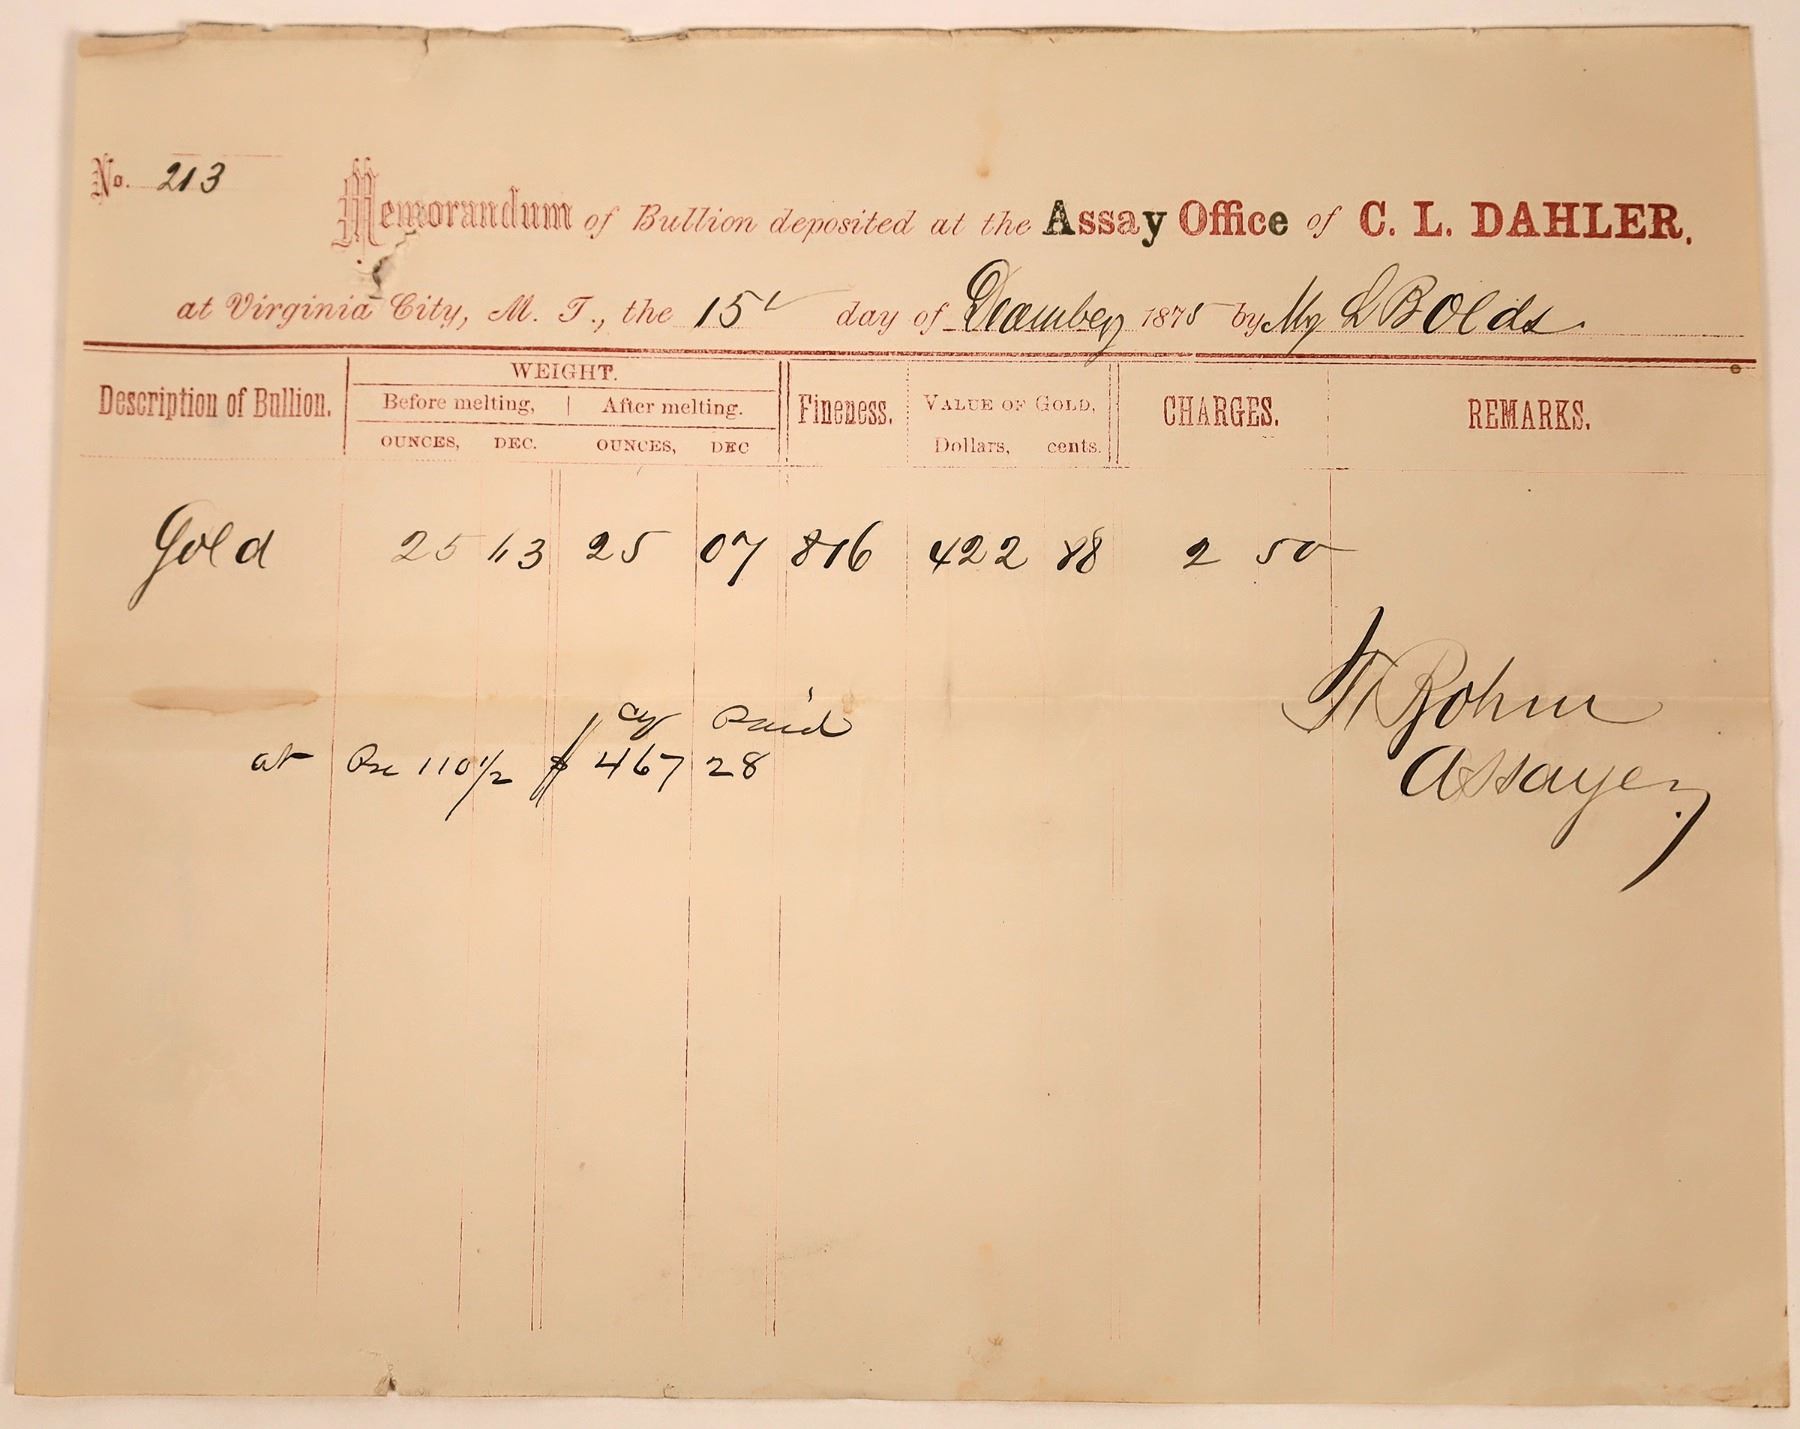 No. 213
Memorandum of Bullion deposited at the Assay Office of C. L. DAHLER,
at Virginia City, M. T., the 15 day of December 1875 by Mr L B Olds
Description of Bullion. WEIGHT. Fineness. VALUE OF GOLD, CHARGES. REMARKS.
Before melting, After melting.
OUNCES, DEC. OUNCES, DEC Dollars, cents.
Gold 25 25 07 816 422 88 2 50
Bohm
Assayer
cy Paid
at 110 1/2 $ 467 28